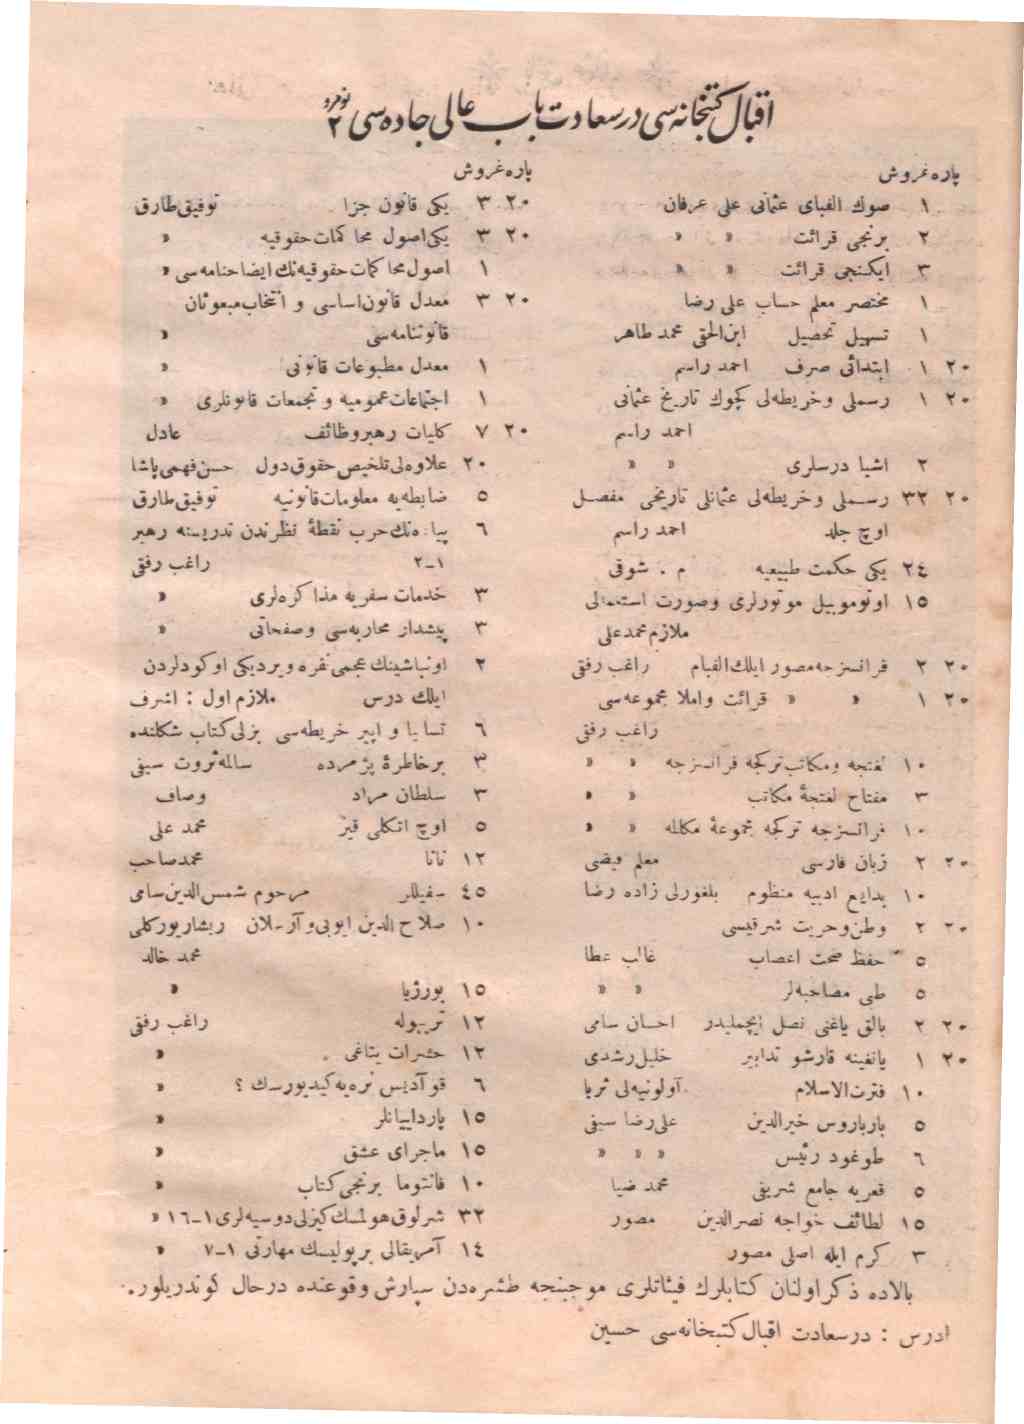 اقبال كتبخانه‌سی درسعادت باب عالی جاده‌سی نومرو ٢
پاره غروش
١ صوك الفبای عثمانی علی عرفان
٢ برنجی قرائت » »
٣ ایكنجی قرائت » »
١ مختصر معلم حساب علی رضا
١ تسهیل تحصیل ابن‌الحقی محمد طاهر
٢٠ ١ ابتدائی صرف احمد راسم
٢٠ ١ رسملی وخریطه‌لی كچوك تاریخ عثمانی
احمد راسم
٢ اشیا درسلری » »
٢٠ ٣٢ رسملی وخریطه‌لی عثمانلی تاریخی مفصل
اوچ جلد احمد راسم
٢٤ یكی حكمت طبیعیه م . شوقی
١٥ اوتوموبیل موتورلری وصورت استعمالی
ملازم محمدعلی
٢٠ ٢ فرانسزجه مصور ایلك الفبام راغب رفقی
٢٠ ١ » » قرائت واملا مجموعه‌سی
راغب رفقی
١٠ لغتجه ومكاتب تركجه فرانسزجه » »
٣ مفتاح لغتجهٔ مكاتب » »
١٠ فرانسزجه تركجه مجموعهٔ مكالمه » »
٢٠ ٢ زبان فارسی معلم فیضی
١٠ بدایع ادبیه منظوم بلغورلی زاده رضا
٢٠ ٢ وطن وحریت شرقیسی
٥ حفظ صحت اعصاب غالب عطا
٥ طبی مصاحبه‌لر » »
٢٠ ٢ بالق یاغنی نصل ایچملیدر احسان سامی
٢٠ ١ یانغینه قارشو تدابیر خلیل رشدی
١٠ فترت‌الاسلام آولونیه‌لی ثریا
٥ بارباروس خیرالدین علی رضا سیفی
٦ طوغود رئیس » » »
٥ قعریه جامع شریفی محمد ضیا
١٥ لطائف خواجه نصرالدین مصور
٣ كرم ایله اصلی مصور
پاره غروش
٢٠ ٣ یكی قانون جزا توفیق طارق
٢٠ ٣ یكی اصول محاكمات حقوقیه »
١ اصول محاكمات حقوقیه‌نك ایضاحنامه‌سی »
٢٠ ٣ معدل قانون‌اساسی و انتخاب مبعوثان
قانوننامه‌سی »
١ معدل مطبوعات قانونی »
١ اجتماعات عمومیه و تجمعات قانونلری »
٢٠ ٧ كلیات رهبروظائف عادل
٢٠ علاوه‌لی تلخیص حقوق دول حسن فهمی پاشا
٥ ضابطه‌یه معلومات قانونیه توفیق طارق
٦ پیاده‌نك حرب نقطهٔ نظرندن تدریسنه رهبر
١-٢ راغب رفقی
٣ خدمات سفریه مذاكره‌لری »
٣ پیشدار محاربه‌سی وصفحاتی »
٢ اونباشینك عجمی نفره ویردیكی اوكودلردن
ایلك درس ملازم اول : اشرف
٦ تسالیا و اپیر خریطه‌سی بزلی كتاب شكلنده
٣ برخاطرهٔ پژمرده سالمه ثروت سیفی
٣ سلطان مراد وصاف
٥ اوچ اتكلی قیز محمد علی
١٢ نانا محمد صاحب
٤٥ سفیللر مرحوم شمس‌الدین سامی
١٠ صلاح الدین ایوبی و آرسلان ریشار یوركلی
محمد خالد
١٥ بورژیا »
١٢ تریبوله راغب رفقی
١٢ حشرات یتاغی »
٦ قوآدیس نره‌یه كیدیورسك ؟ »
١٥ پاردابیانلر »
١٥ ماجرای عشق »
١٠ فانتوما برنجی كتاب »
٣٢ شرلوق هولمسك كیزلی دوسیه‌لری ١-١٦ »
١٤ آمریقالی بر پولیسك مهارتی ١-٧ »
بالاده ذكر اولنان كتابلرك فیئاتلری موجبنجه طشره‌دن سپارش وقوعنده درحال كوندریلور.
ادرس : درسعادت اقبال كتبخانه‌سی حسین